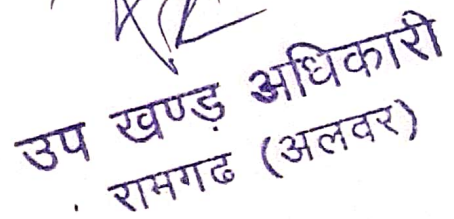 उप खण्ड़ अधिकारी
रामगढ (अलवर)